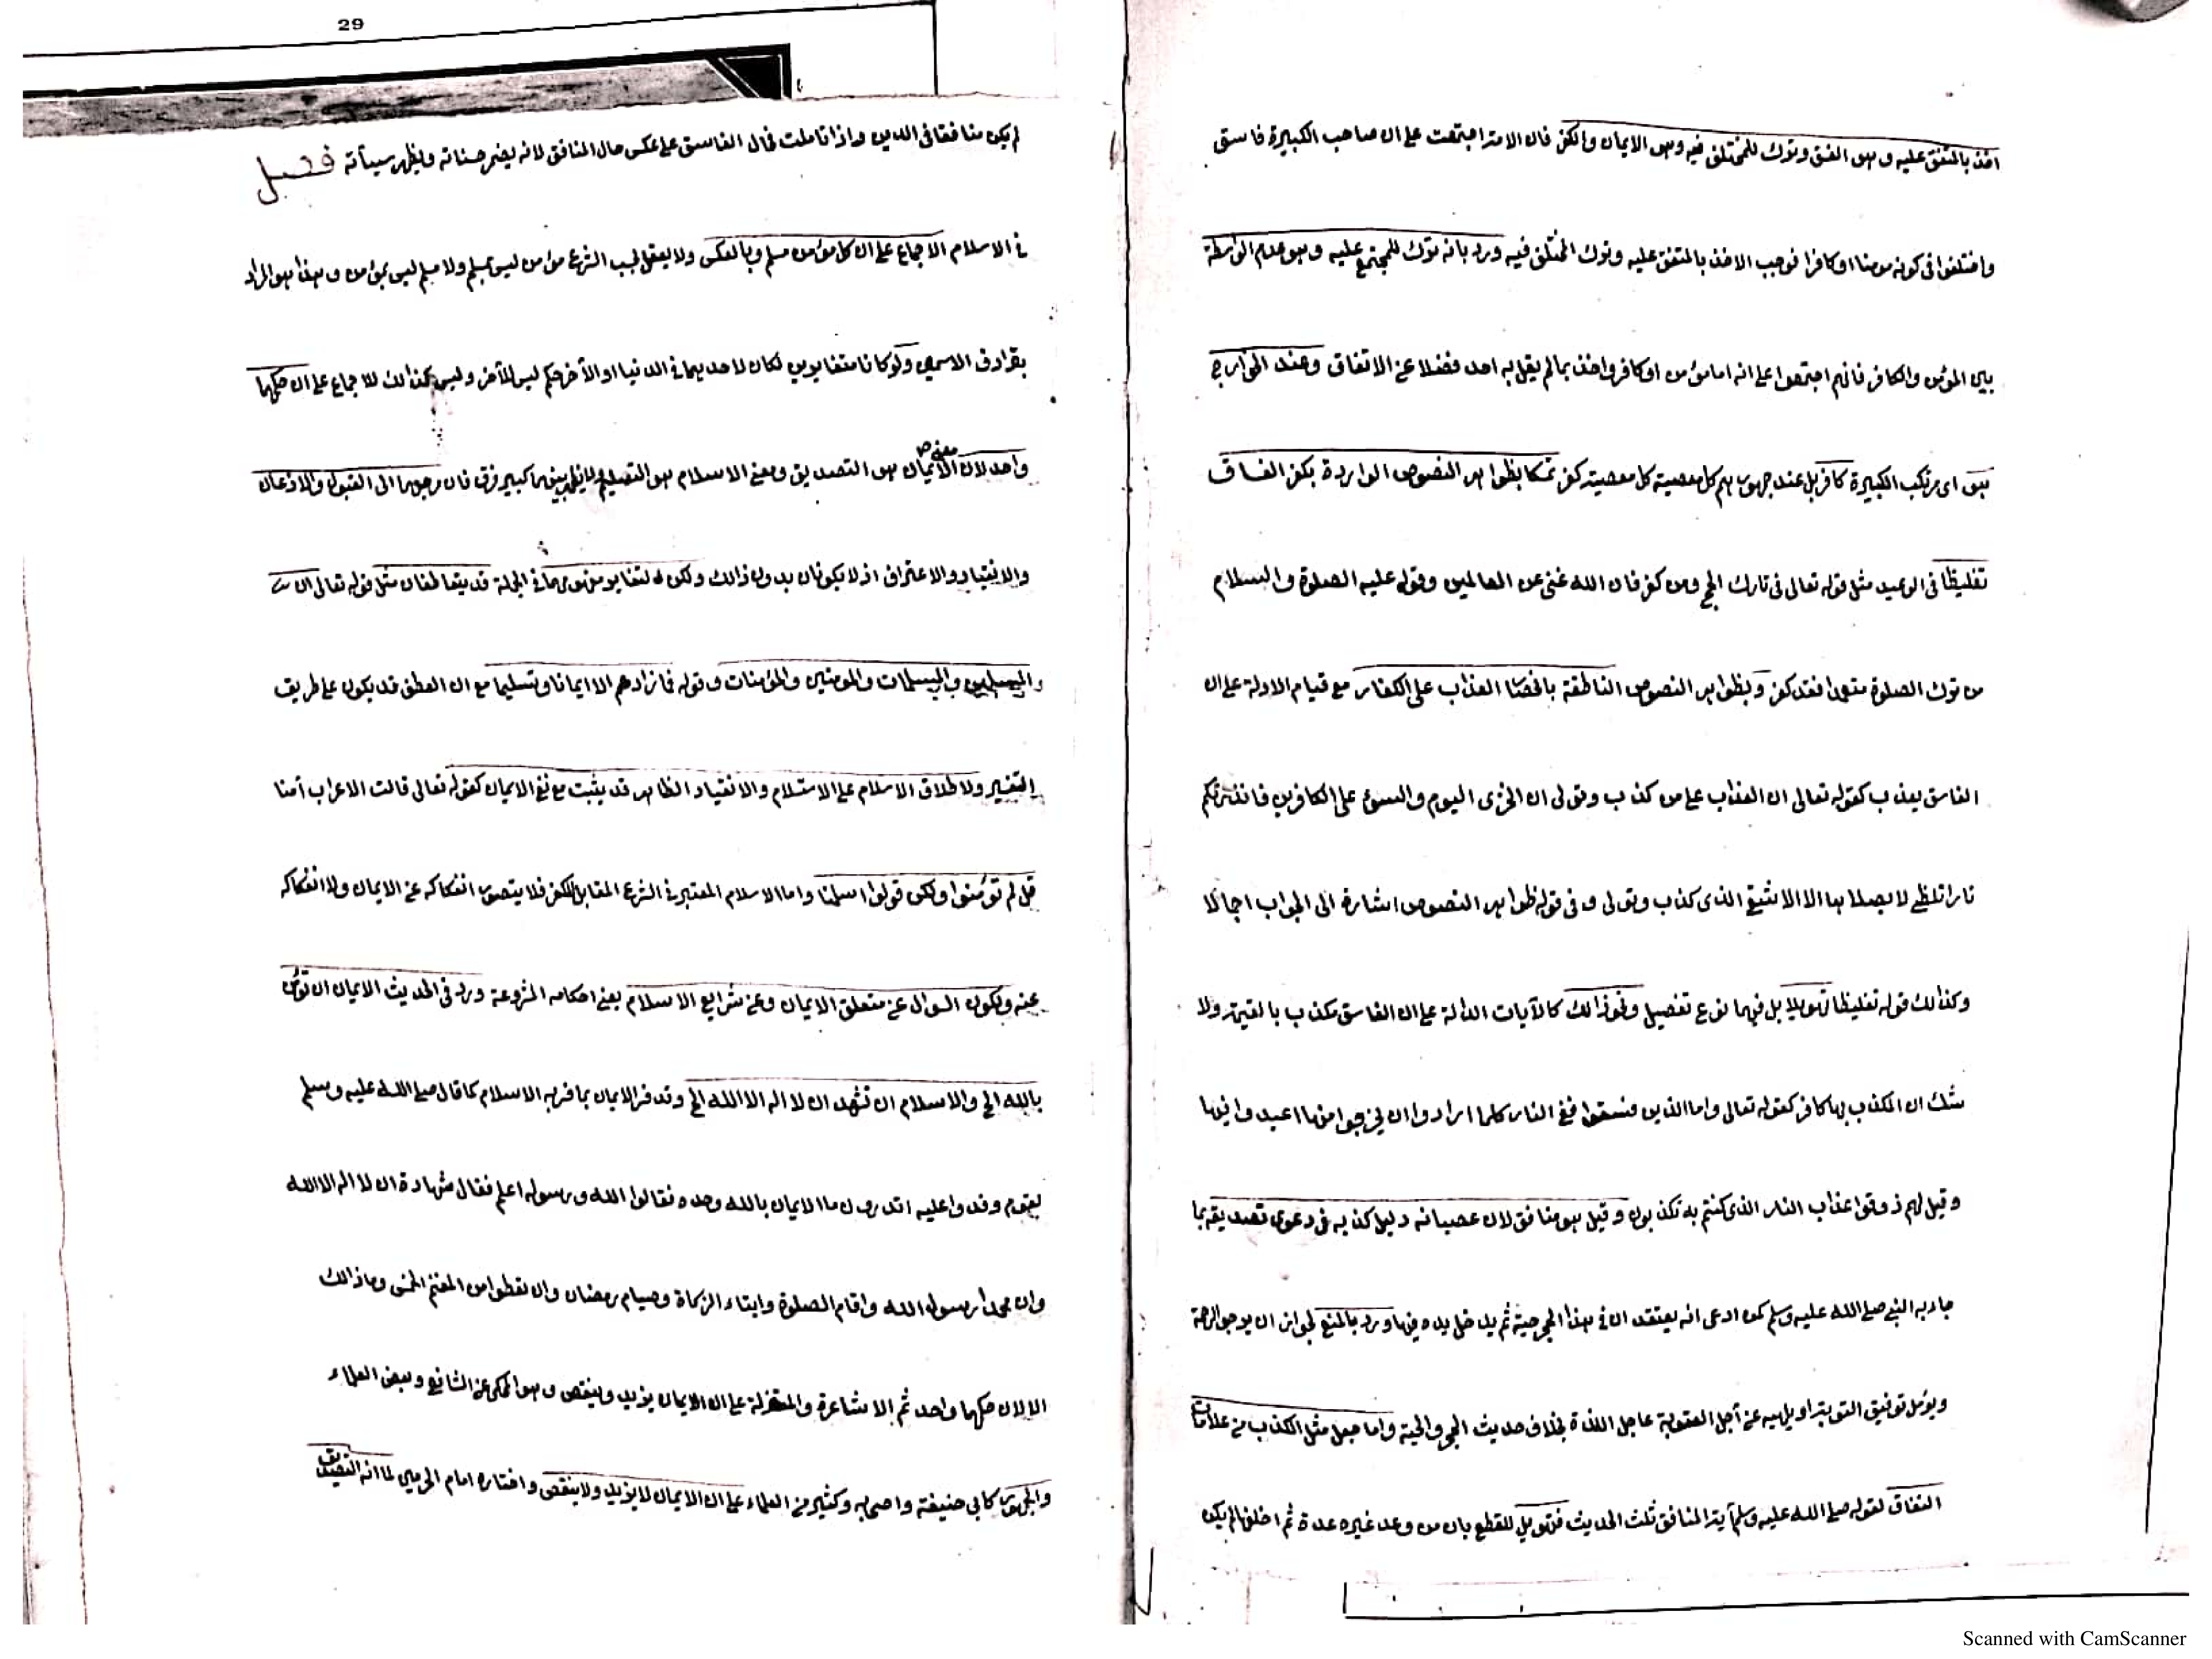 29
اخذ بالمتفق عليه وهو الفسق وترك للمختلف فيه وهو الايمان والكفر فان الامة اجتمعت على ان صاحب الكبيرة فاسق
واختلفوا فى كونه مومنا او كافرا فوجب الاخذ بالمتفق عليه وترك المختلف فيه ورد بانه ترك للمجتمع عليه وهو عدم الواسطة
بين المؤمن والكافر فانهم اجتمعوا على انه اما مؤمن او كافر واخذ بما لم يقل به احد فضلا عن الاتفاق وعند الخوارج
هو اى مرتكب الكبيرة كافر بل عند جمهورهم كل معصية كل معصية كفر تمسكا بظواهر النصوص الواردة بكفر الفساق
تغليظا فى الوعيد مثل قوله تعالى فى تارك الحج ومن كفر فان الله غنى عن العالمين وقوله عليه الصلوة والسلام
من ترك الصلوة متعمدا فقد كفر وبظواهر النصوص الناطقة باختصاص العذاب على الكفار مع قيام الادلة على ان
الفاسق يعذب كقوله تعالى ان العذاب على من كذب وتولى ان الخزى اليوم والسوء على الكافرين فانذرتكم
نارا تلظى لا يصلاها الا الاشقى الذى كذب وتولى وفى قوله ظواهر النصوص اشارة الى الجواب اجمالا
وكذالك قوله تغليظا تهويلا بل فيهما نوع تفصيل ونحو ذالك كالآيات الدالة على ان الفاسق مكذب بالقيمة ولا
شك ان المكذب بها كافر كقوله تعالى واما الذين فسقوا ففى النار كلما ارادوا ان يخرجوا منها اعيدوا فيها
وقيل لهم ذوقوا عذاب النار الذى كنتم به تكذبون وقيل هو منافق لان عصيانه دليل كذبه فى دعوى تصديقه بما
جاء به النبى صلى الله عليه وسلم كمن ادعى انه يعتقد ان فى هذا الجحر حية ثم يدخل يده فيها ورد بالمنع لجواز ان يرجو الرحمة
ويؤمل توفيق التوبة او يلهيه عن آجل العقوبة عاجل اللذة بخلاف حديث الجحر والحية واما جعل مثل الكذب من علامات
النفاق لقوله صلى الله عليه وسلم آية المنافق ثلث الحديث فتهويل للقطع بان من وعد غيره عدة ثم اخلفها لم يكن
لم يكن منافقا فى الدين واذا تاملت فحال الفاسق على عكس حال المنافق لانه يضمر حسناته ويظهر سيآته فصل
فى الاسلام الاجماع على ان كل مؤمن مسلم وبالعكس ولا يعقل بحسب الشرع مؤمن ليس بمسلم ولا مسلم ليس بمؤمن وهذا هو المراد
بترادف الاسمين ولو كانا متغايرين لكان لاحدهما فى الدنيا او الآخر حكم ليس للآخر وليس كذالك للاجماع على ان حكمهما
واحد لان معنى الايمان هو التصديق ومعنى الاسلام هو التسليم ولا يظهر بينهما كبير فرق فان رجوعهما الى القبول والاذعان
والانقياد والاعتراف اذ لا يكونان بدون ذالك ولكن لتغاير مفهوميهما فى الجملة قد يتعاطفان مثل قوله تعالى ان
المسلمين والمسلمات والمومنين والمؤمنات وقوله فما زادهم الا ايمانا وتسليما مع ان العطف قد يكون على طريق
التفسير ولاطلاق الاسلام على الاستلام والانقياد الظاهر قد يثبت مع نفى الايمان كقوله تعالى قالت الاعراب آمنا
قل لم تؤمنوا ولكن قولوا اسلمنا واما الاسلام المعتبر فى الشرع المقابل للكفر فلا يتصور انفكاكه عن الايمان ولا انفكاكه
عنه ولكون السوال عن متعلق الايمان وعن شرايع الاسلام يعنى احكامه المشروعة ورد فى الحديث الايمان ان تؤمن
بالله الخ والاسلام ان تشهد ان لا اله الا الله الخ وقد فسر الايمان بما فسر به الاسلام كما قال صلى الله عليه وسلم
لقوم وفدوا عليه اتدرون ما الايمان بالله وحده فقالوا الله ورسوله اعلم فقال شهادة ان لا اله الا الله
وان محمدا رسول الله واقام الصلوة وايتاء الزكاة وصيام رمضان وان تعطوا من المغنم الخمس وما ذالك
الا لان حكمهما واحد ثم الاشاعرة والمعتزلة على ان الايمان يزيد وينقص وهو المحكى عن الشافعى وبعض العلماء
والجمهور كابى حنيفة واصحابه وكثير من العلماء على ان الايمان لا يزيد ولا ينقص واختاره امام الحرمين لما انه التصديق
Scanned with CamScanner